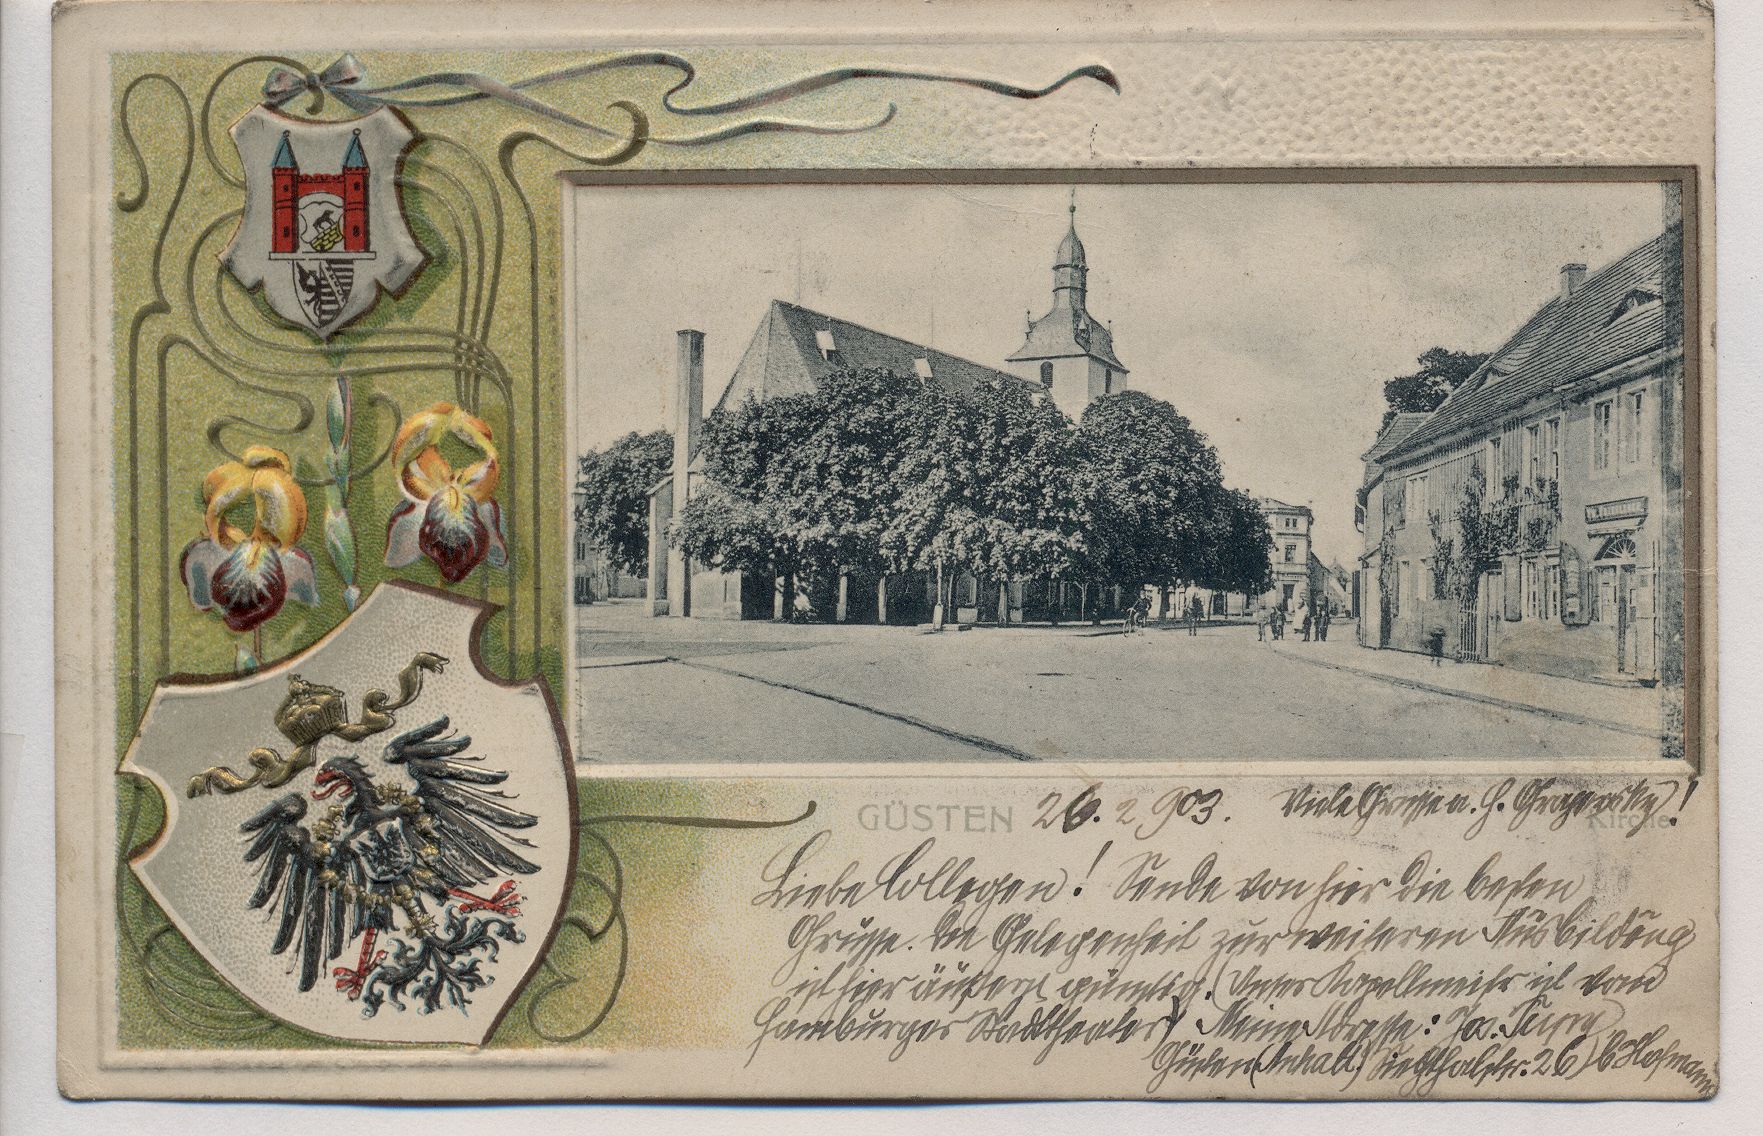 GÜSTEN 26. 2. 903. Viele Grüsse a. H.
Kirche.
Liebe Collegen! Sende von hier die besten
Grüsse. Die Gelegenheit zur weiteren Ausbildung
ist hier äußerst günstig. (Unser Kapellmeister ist vom
Hamburger Stadttheater) Meine Adresse: Jos.
Güsten (Anhalt) 26) b Hofmann